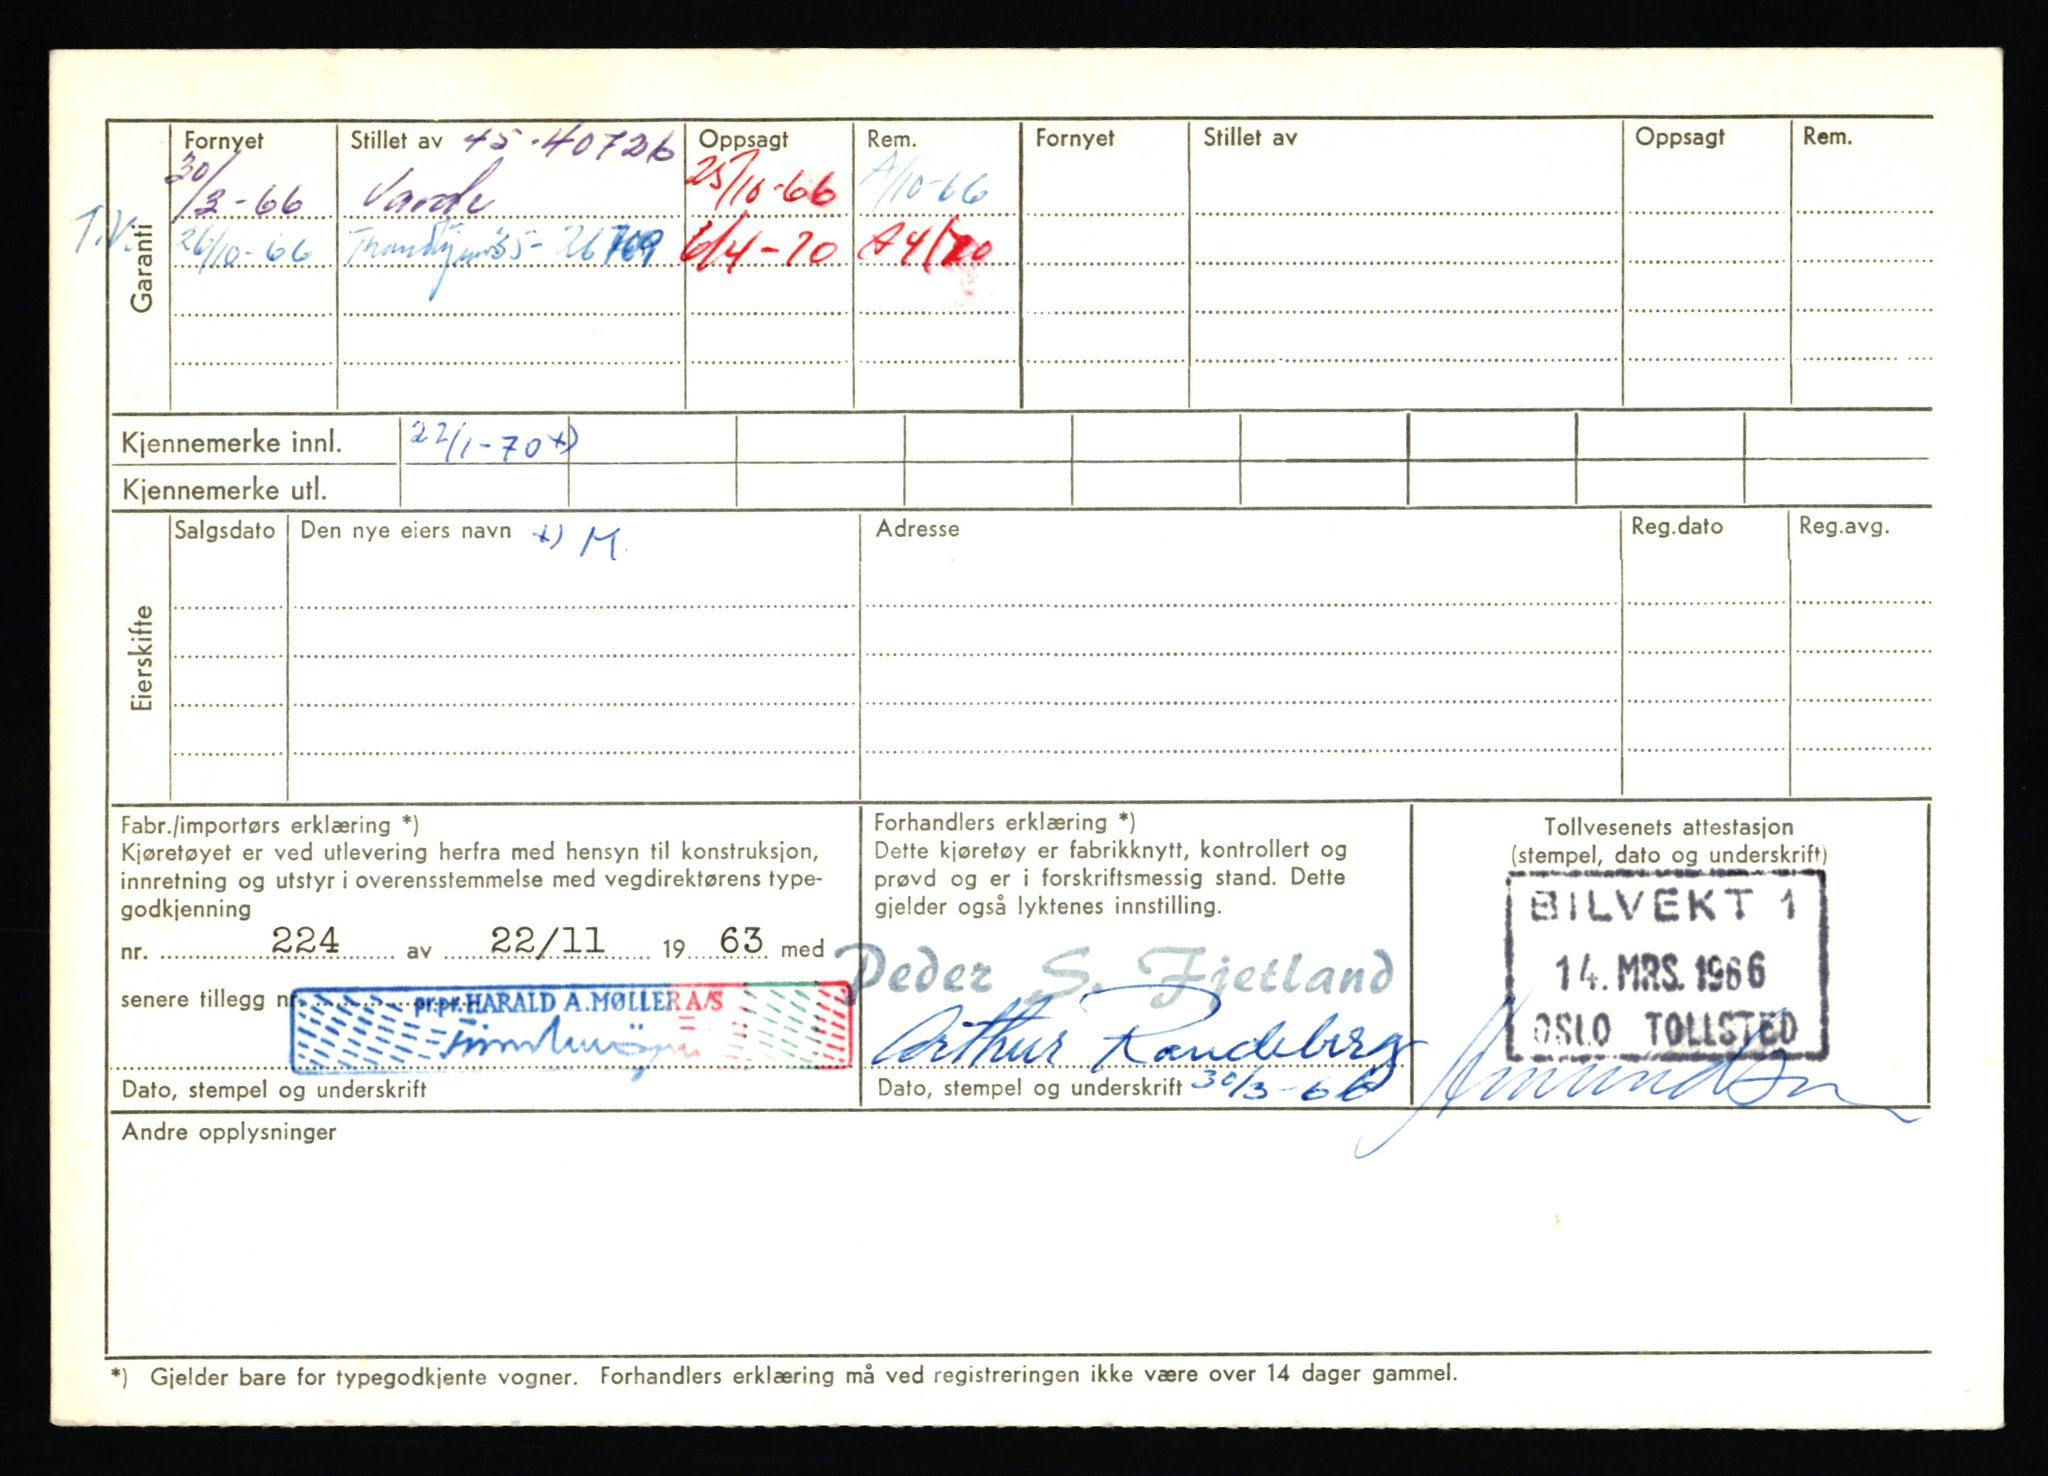 Fornyet Stillet av 45-40726 Oppsagt Rem. Fornyet Stillet av Oppsagt Rem.
30/3-66 Varde 25/10-66 A/10-66
T.V. 26/10-66 35-26769 6/4-70 A4/70
Garanti
Kjennemerke innl. 22/1-70 x)
Kjennemerke utl.
Salgsdato Den nye eiers navn x) M. Adresse Reg.dato Reg.avg.
Eierskifte
Fabr./importørs erklæring *)
Kjøretøyet er ved utlevering herfra med hensyn til konstruksjon,
innretning og utstyr i overensstemmelse med vegdirektørens type-
godkjenning
nr. 224 av 22/11 19 63 med
senere tillegg nr.
pr.pr. HARALD A. MØLLER A/S
Dato, stempel og underskrift
Forhandlers erklæring *)
Dette kjøretøy er fabrikknytt, kontrollert og
prøvd og er i forskriftsmessig stand. Dette
gjelder også lyktenes innstilling.
Peder S. Fjetland
Arthur Randeberg
Dato, stempel og underskrift 30/3-66
Tollvesenets attestasjon
(stempel, dato og underskrift)
BILVEKT 1
14. MRS. 1966
OSLO TOLLSTED
Amundsen
Andre opplysninger
*) Gjelder bare for typegodkjente vogner. Forhandlers erklæring må ved registreringen ikke være over 14 dager gammel.